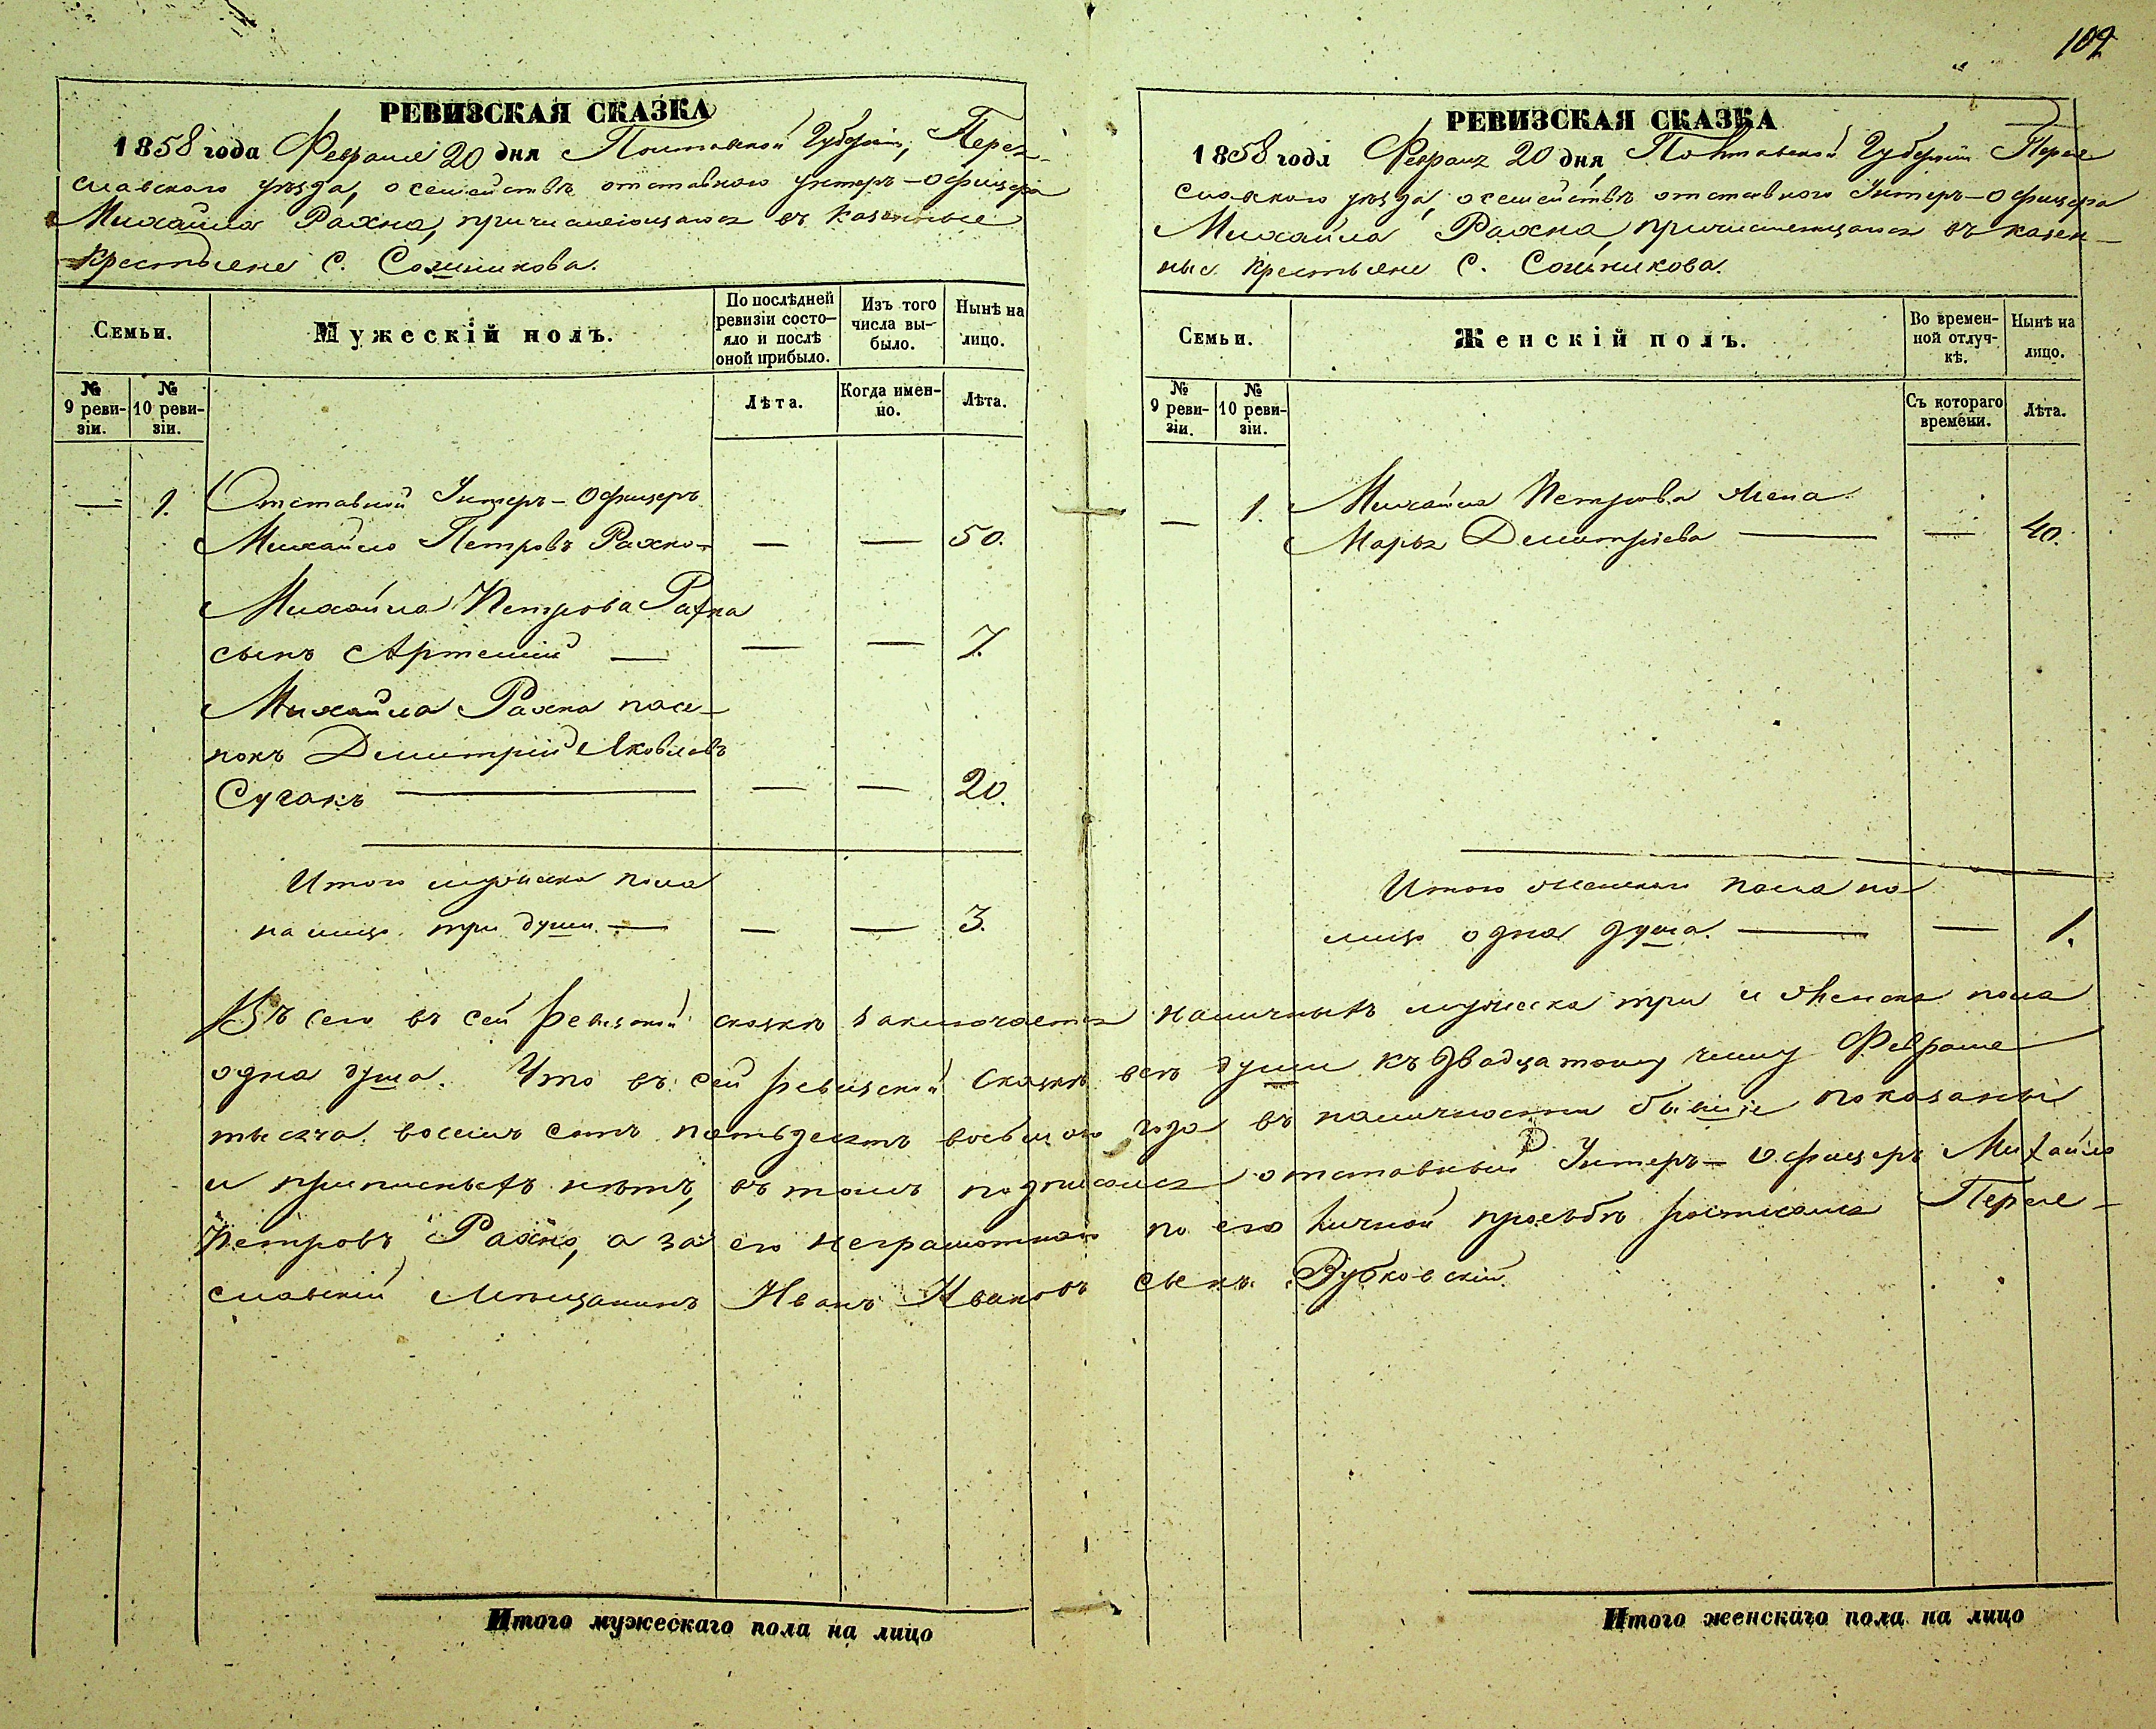 109
РЕВИЗСКАЯ СКАЗКА
1858 года Февраля 20 дня Полтавской Губерніи, Перея-
славского уѣзда, о семействѣ отставного унтеръ-офицера
Михайла Рахна, причисляющагося въ казенные
крестьяне с. Сошникова.
Семьи.
Мужескій полъ.
По послѣдней
ревизіи состо-
яло и послѣ
оной прибыло.
Изъ того
числа вы-
было.
Нынѣ на
лицо.
№
9 реви-
зіи.
№
10 реви-
зіи.
Лѣта.
Когда имен-
но.
Лѣта.
— 1. Отставной Унтеръ-Офицеръ
Михайло Петровъ Рахно — — — 50.
Михайла Петрова Рахна
сынъ Артемій — — — 7.
Михайла Рахна пасе-
нокъ Димитрій Яковлевъ
Сугакъ — — — 20.
Итого мужеска пола
на лицо три души. — — — 3.
РЕВИЗСКАЯ СКАЗКА
1858 года Февраля 20 дня, Полтавской Губерніи Перея
славского уѣзда, о семействѣ отставного Унтеръ-Офицера
Михайла Рахна, причисляющагося въ казен-
ные крестьяне с. Сошникова.
Семьи.
Женскій полъ.
Во времен-
ной отлуч-
кѣ.
Нынѣ на
лицо.
№
9 реви-
зіи.
№
10 реви-
зіи.
Съ котораго
времени.
Лѣта.
— 1. Михайла Петрова жена
Марья Димитріева — — 40.
Итого женскаго пола на
лицо одна душа. — — 1.
Всего въ сей ревизской сказкѣ заключается наличныхъ мужеска три и женска пола
одна душа. Что въ сей ревизской сказкѣ всѣ души къ двадцатому числу Февраля
тысяча восемь сотъ пятьдесятъ восьмого года въ наличности бывшіе показаны
и приписныхъ нѣтъ, въ томъ подписался отставный Унтеръ-Офицеръ Михайло
Петровъ Рахно, а за его неграмотнаго по его личной просьбѣ росписался Перея-
славскій Мѣщанинъ Иванъ Ивановъ сынъ Зубковскій.
Итого мужескаго пола на лицо
Итого женскаго пола на лицо